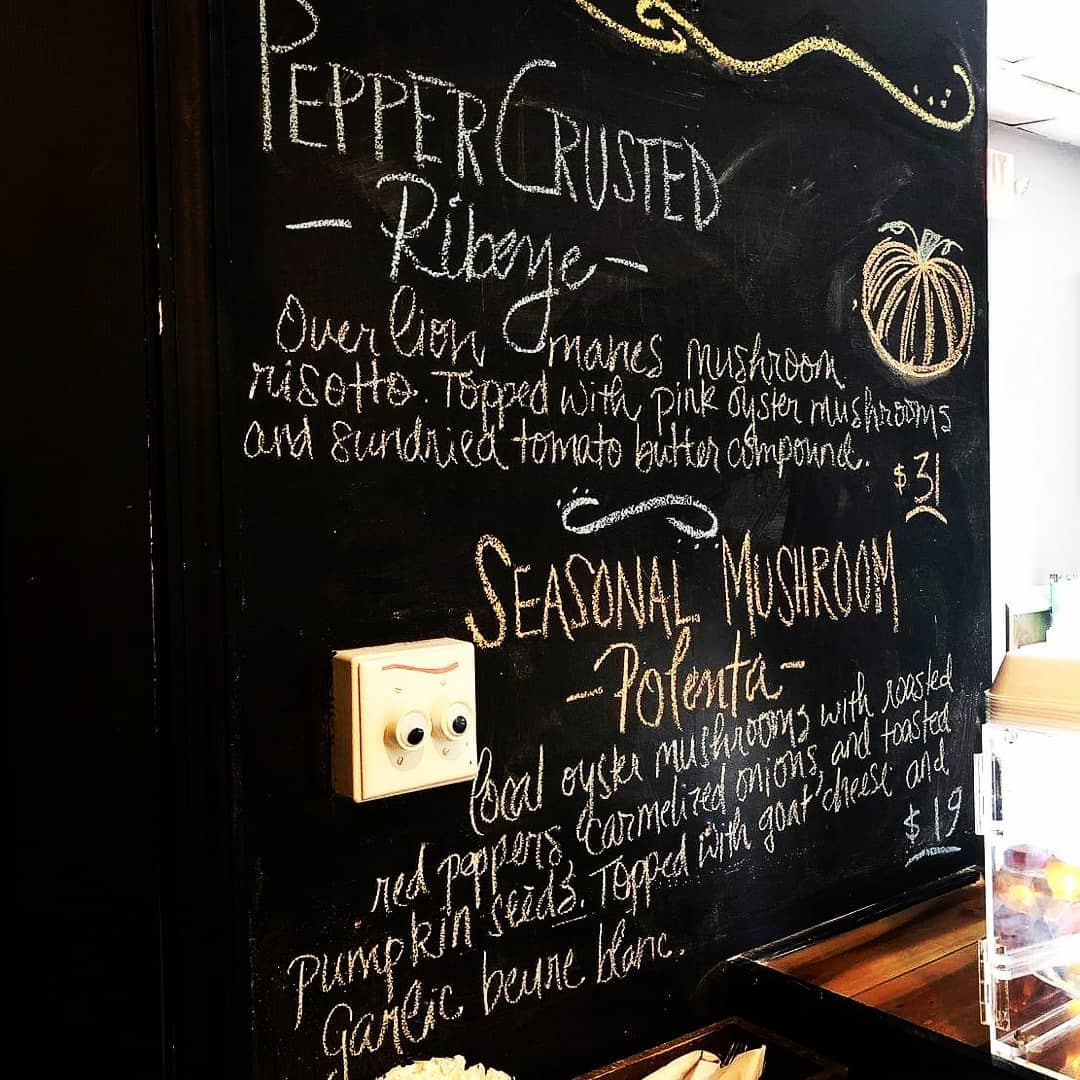 PEPPER CRUSTED
- Ribeye -
Over lion manes mushroom
risotto. Topped with pink oyster mushrooms
and sundried tomato butter compound.
$31
SEASONAL MUSHROOM
- Polenta -
local oyster mushrooms with roasted
red peppers, carmelized onions, and toasted
pumpkin seeds. Topped with goat cheese and
$19
Garlic beurre blanc.